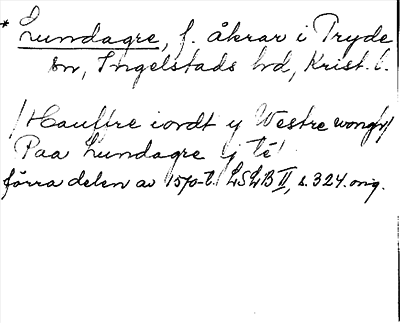 * Lundagre, f. åkrar i Tryde
sn, Ingelstads hd, Krist. l.
/Hauffre iordt y Westre wongh/
Paa Lundagre ij té
förra delen av 1570-t. LSLB II, s. 324. orig.